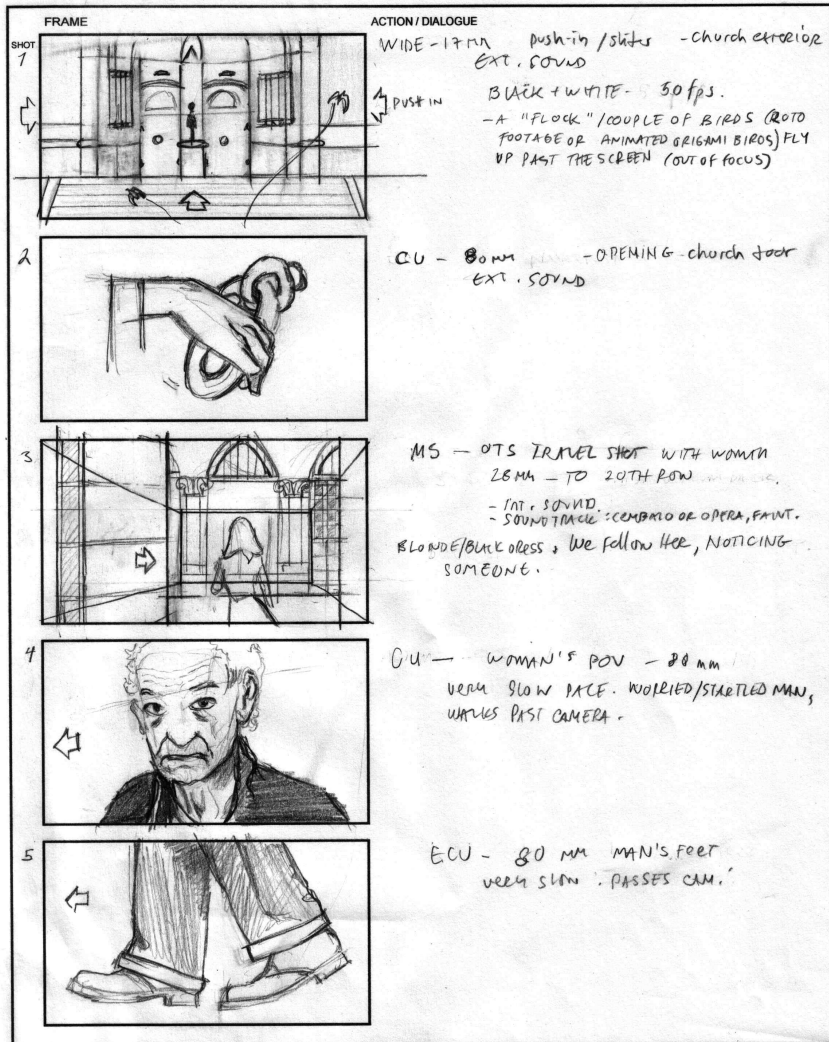 FRAME
ACTION / DIALOGUE
SHOT
1
WIDE - 17MM push-in / slider - church exterior
EXT. SOUND
PUSH IN
BLACK + WHITE - 50 fps.
- A "FLOCK" / COUPLE OF BIRDS (ROTO
FOOTAGE OR ANIMATED ORIGAMI BIRDS) FLY
UP PAST THE SCREEN (OUT OF FOCUS)
2
CU - 80MM - OPENING - church door
EXT. SOUND
3
MS - OTS TRAVEL SHOT WITH WOMAN
28MM - TO 20TH ROW
- INT. SOUND.
- SOUNDTRACK: CEMBALO OR OPERA, FAINT.
BLONDE/BLACK DRESS. We follow Her, NOTICING
SOMEONE.
4
CU - WOMAN'S POV - 80 mm
very SLOW PACE. WORRIED/STARTLED MAN,
WALKS PAST CAMERA.
5
ECU - 80 MM MAN'S FEET
very slow. PASSES CAM.